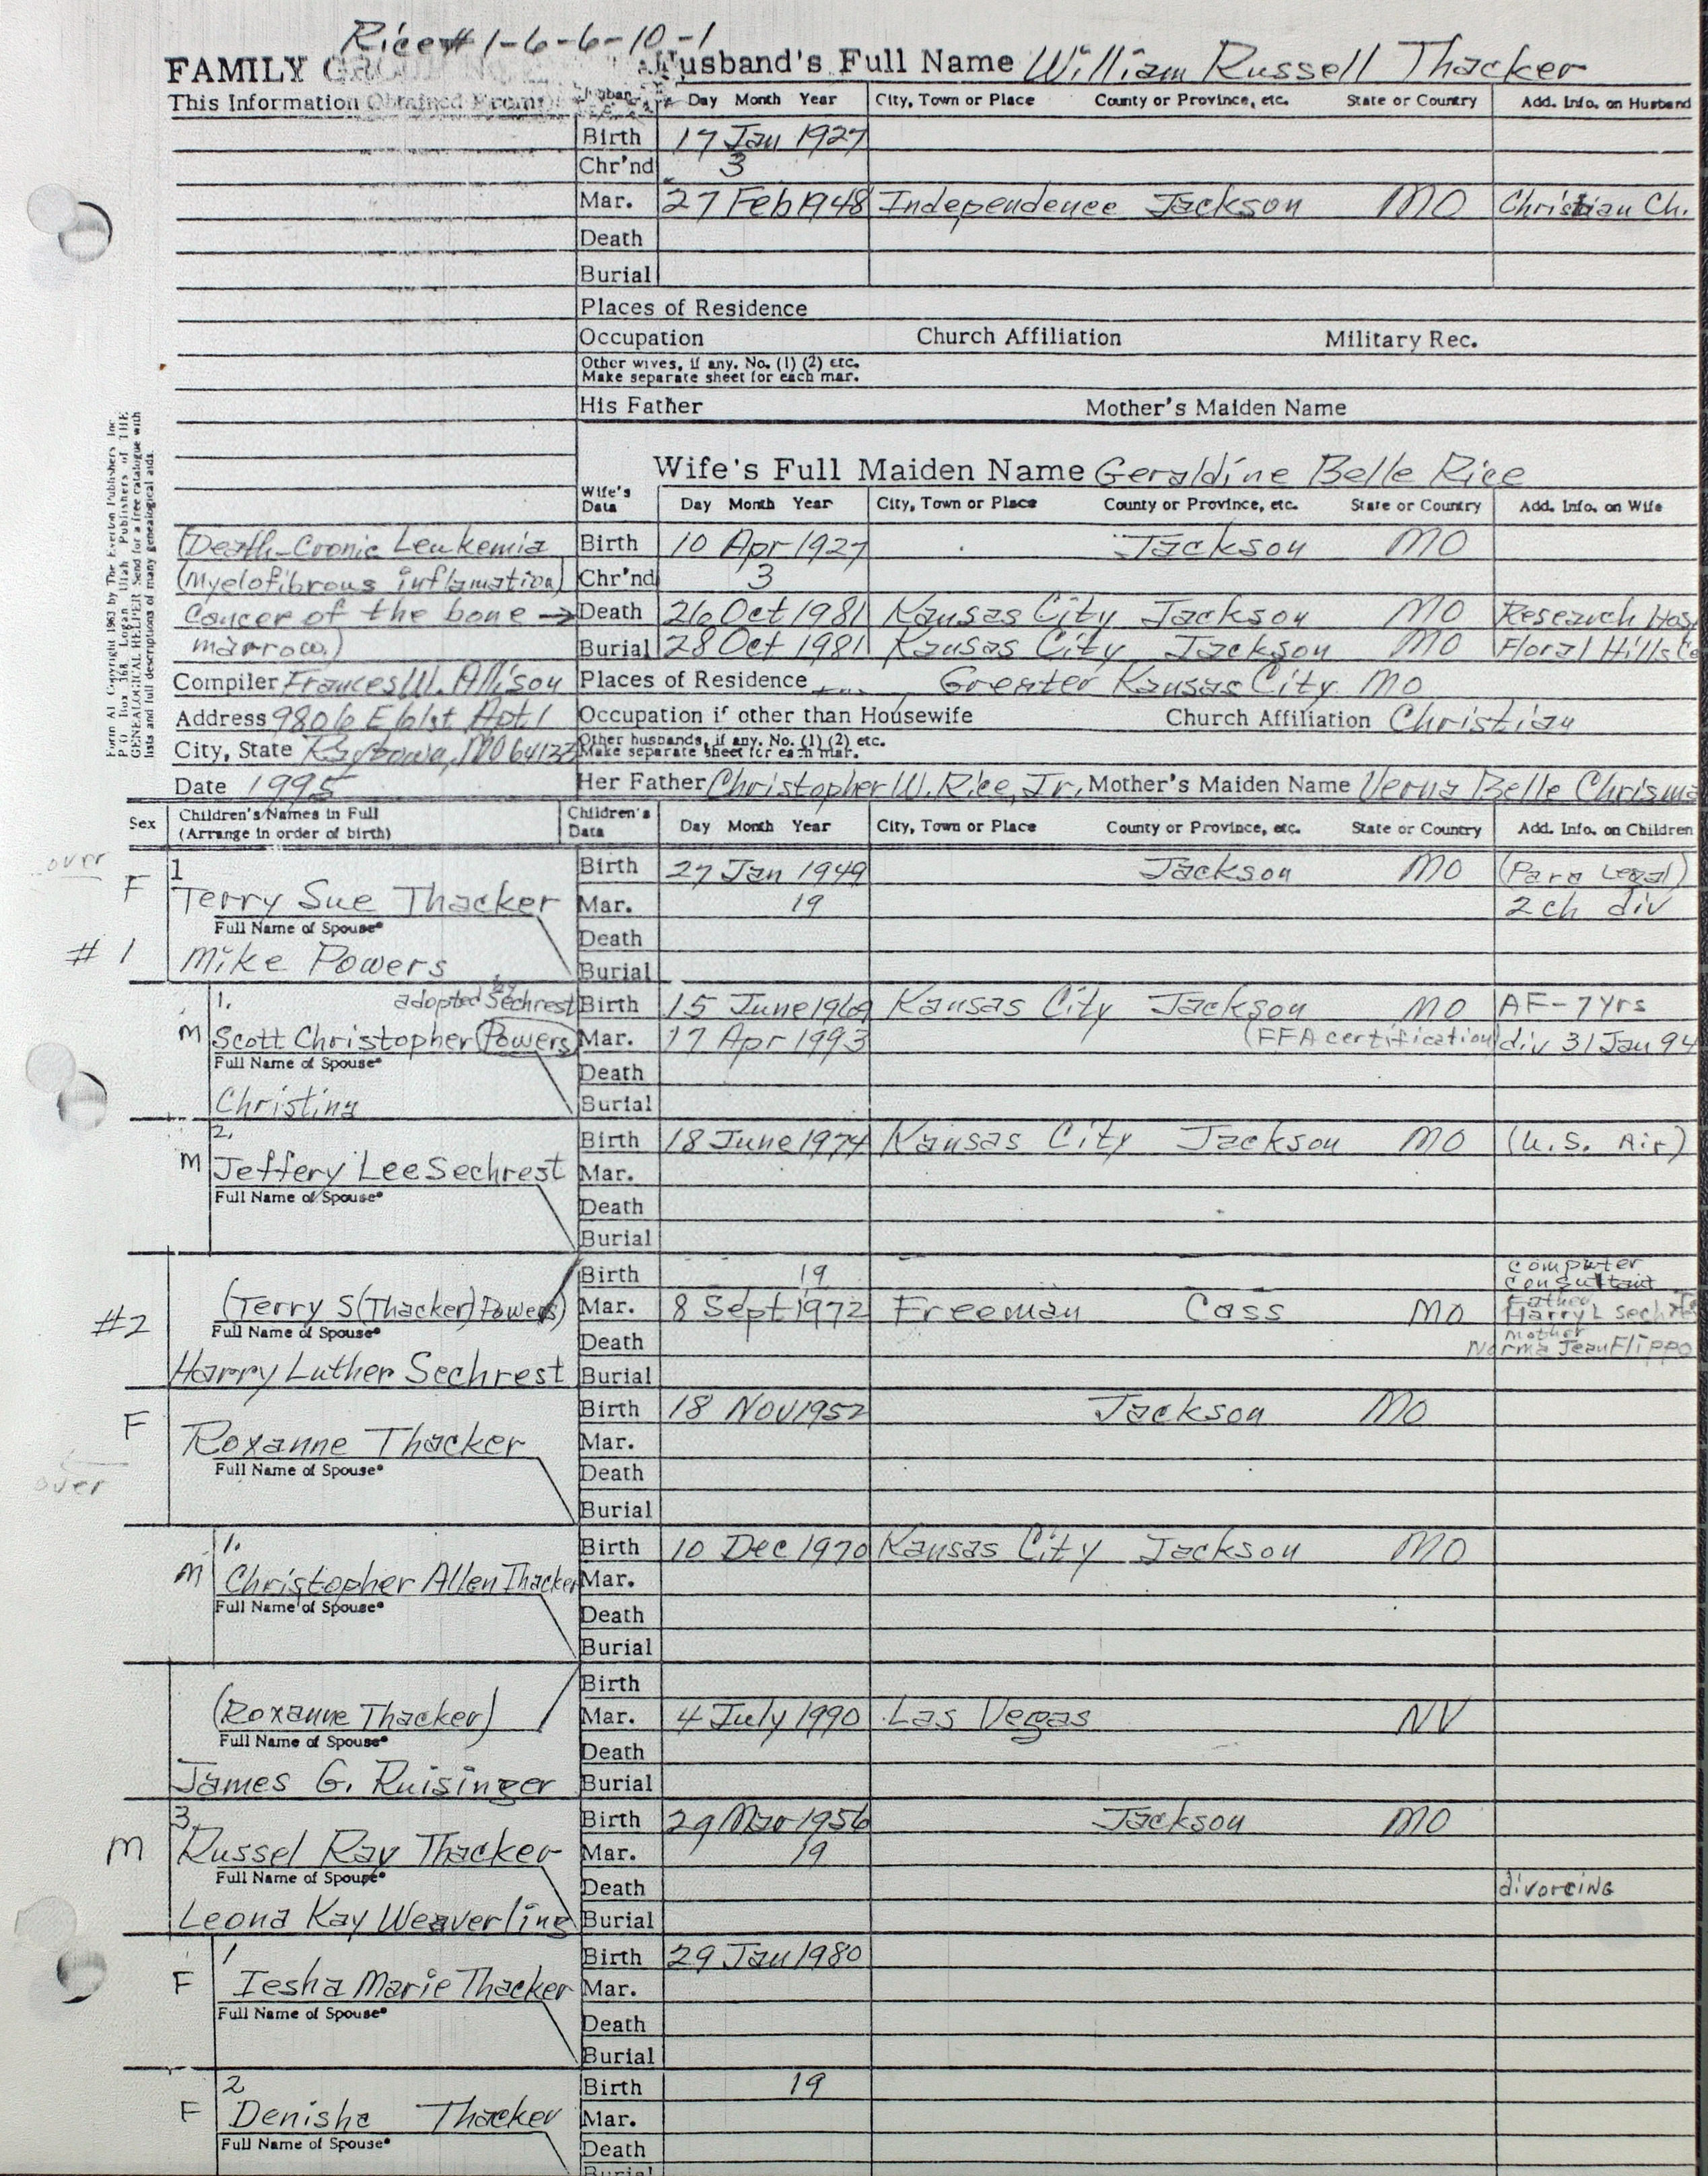 Rice# 1-6-6-10-1
FAMILY GROUP Husband's Full Name William Russell Thacker
This Information Obtained From: Day Month Year City, Town or Place County or Province, etc. State or Country Add. Info. on Husband
Birth 17 Jan 1927
Chr'nd 3
Mar. 27 Feb 1948 Independence Jackson MO Christian Ch.
Death
Burial
Places of Residence
Occupation Church Affiliation Military Rec.
Other wives, if any. No. (1) (2) etc.
Make separate sheet for each mar.
His Father Mother's Maiden Name
Form A1 Copyright 1962 by The Everton Publishers Inc
P O Box 368 Logan Utah Publishers of THE
GENEALOGICAL HELPER Send for a free catalogue with
lists and full descriptions of many genealogical aids.
Wife's Full Maiden Name Geraldine Belle Rice
Wife's Data Day Month Year City, Town or Place County or Province, etc. State or Country Add. Info. on Wife
(Death-Cronic Leukemia Birth 10 Apr 1927 Jackson MO
(Myelofibrous inflamation) Chr'nd 3
Cancer of the bone → Death 26 Oct 1981 Kansas City Jackson MO Research Hos
marrow.) Burial 28 Oct 1981 Kansas City Jackson MO Floral Hills Ce
Compiler Frances W. Allison Places of Residence Greater Kansas City MO
Address 9806 E 61st Apt 1 Occupation if other than Housewife Church Affiliation Christian
City, State MO 64133 Other husbands, if any. No. (1) (2) etc.
Make separate sheet for each mar.
Date 1995 Her Father Christopher W. Rice, Jr. Mother's Maiden Name Verna Belle Chrisma
Sex Children's Names in Full (Arrange in order of birth) Children's Data Day Month Year City, Town or Place County or Province, etc. State or Country Add. Info. on Children
over
1 Birth 27 Jan 1949 Jackson MO (Para Legal)
F Terry Sue Thacker Mar. 19 2 ch div
Full Name of Spouse* Death
#1 Mike Powers Burial
1. adopted by Sechrest Birth 15 June 1969 Kansas City Jackson MO AF-7 Yrs
M Scott Christopher (Powers) Mar. 17 Apr 1993 (FFA certification) div 31 Jan 94
Full Name of Spouse* Death
Christina Burial
2. Birth 18 June 1974 Kansas City Jackson MO (U.S. Air)
M Jeffery Lee Sechrest Mar.
Full Name of Spouse* Death
Burial
Birth 19 computer consultant
#2 (Terry S (Thacker) Powers) Mar. 8 Sept 1972 Freeman Cass MO Father Harry L Sechrest
Full Name of Spouse* Death mother Norma Jean Flippo
Harry Luther Sechrest Burial
F Birth 18 Nov 1952 Jackson MO
Roxanne Thacker Mar.
Full Name of Spouse* Death
over
Burial
1. Birth 10 Dec 1970 Kansas City Jackson MO
M Christopher Allen Thacker Mar.
Full Name of Spouse* Death
Burial
Birth
(Roxanne Thacker) Mar. 4 July 1990 Las Vegas NV
Full Name of Spouse* Death
James G. Ruisinger Burial
3. Birth 29 Mar 1956 Jackson MO
M Russel Ray Thacker Mar. 19
Full Name of Spouse* Death divorcing
Leona Kay Weaverling Burial
1 Birth 29 Jan 1980
F Iesha Marie Thacker Mar.
Full Name of Spouse* Death
Burial
2 Birth 19
F Denisha Thacker Mar.
Full Name of Spouse* Death
Burial